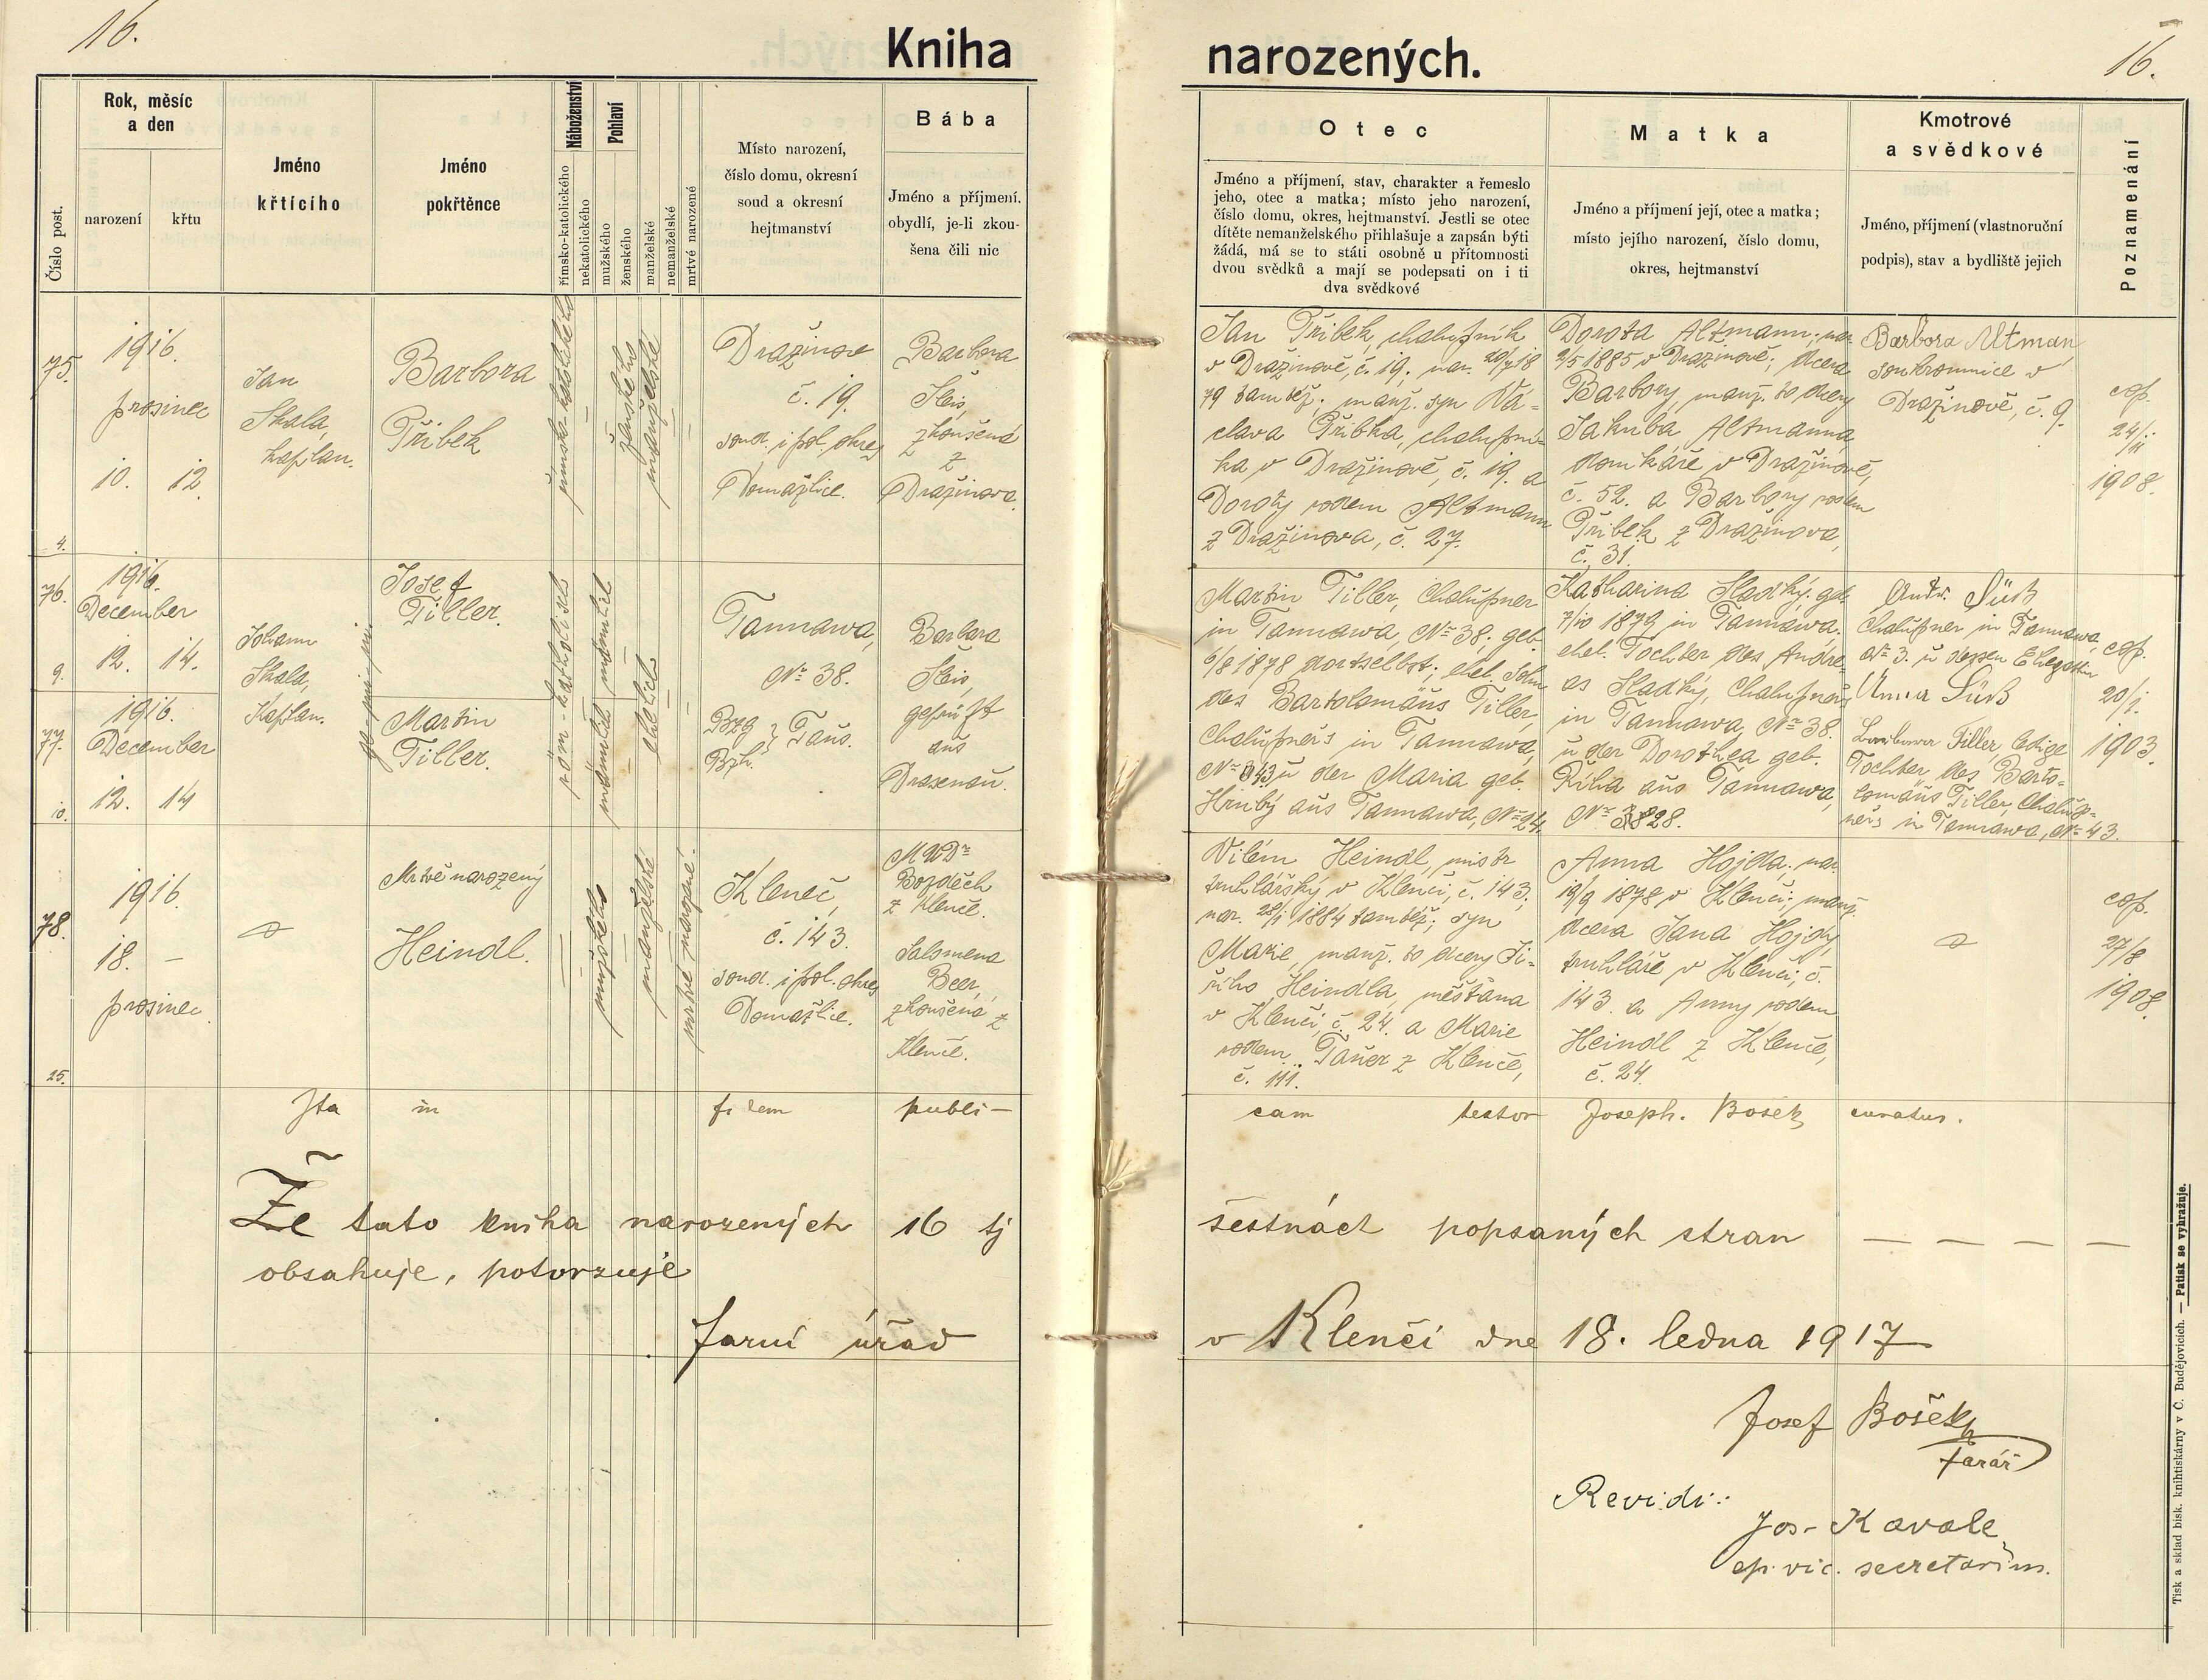 16.
Kniha
narozených.
16.
Číslo post.
Rok, měsíc
a den
narození
křtu
Jméno
křtícího
Jméno
pokřtěnce
Náboženství
římsko-katolického
nekatolického
Pohlaví
mužského
ženského
manželské
nemanželské
mrtvé narozené
Místo narození,
číslo domu, okresní
soud a okresní
hejtmanství
Bába
Jméno a příjmení.
obydlí, je-li zkou-
šena čili nic
Otec
Jméno a příjmení, stav, charakter a řemeslo
jeho, otec a matka; místo jeho narození,
číslo domu, okres, hejtmanství. Jestli se otec
dítěte nemanželského přihlašuje a zapsán býti
žádá, má se to státi osobně u přítomnosti
dvou svědků a mají se podepsati on i ti
dva svědkové
Matka
Jméno a příjmení její, otec a matka;
místo jejího narození, číslo domu,
okres, hejtmanství
Kmotrové
a svědkové
Jméno, příjmení (vlastnoruční
podpis), stav a bydliště jejich
Poznamenání
75.
4.
1916.
prosinec
10. 12.
Jan
Skala,
kaplan.
Barbora
Přibek
římsko-katolického
ženského
manželské
Dražinov
č. 19.
soud. i pol. okres
Domažlice.
Barbora
Šleis,
zkoušená
z
Dražinova.
Jan Přibek, chalupník
v Dražinově, č. 19; nar. 18
79 tamtéž; manž. syn Vá-
clava Přibka, chalupní-
ka v Dražinově, č. 19. a
Doroty rodem Altmann
z Dražinova, č. 27.
Dorota Altmann; nar.
2/5 1885 v Dražinově; dcera
Barbory, manž. to dcery
Jakuba Altmanna,
domkáře v Dražinově,
č. 52. a Barbory rodem
Přibek z Dražinova,
č. 31.
Barbora Altman
soukromnice v
Dražinově, č. 9.
cop.
24/11
1908.
76.
9.
1916.
December
12. 14.
Johann
Skala,
Kaplan.
Josef
Tiller.
77.
10.
1916.
December
12. 14
Martin
Tiller.
röm-katholisch
männlich männlich
ehelich
Tannawa,
Nr. 38.
Bzg
Bzh. } Taus.
Barbara
Šleis,
geprüft
aus
Drasenau.
Martin Tiller, Chalupner
in Tannawa, Nr. 38; geb.
6/8 1878 dortselbst; ehel. Sohn
des Bartolomäus Tiller,
Chalupners in Tannawa,
Nr. 43 u der Maria geb.
Hrubý aus Tannawa, Nr. 24.
Katharina Hladký; geb.
7/10 1879 in Tannawa.
ehel. Tochter des Andre-
as Hladký, Chalupners
in Tannawa, Nr. 38.
u der Dorothea geb.
Říha aus Tannawa,
Nr. 28.
Antr. Süß
Chalupner in Tannawa,
Nr. 3. u dessen Ehegattin
Anna Süß
Barbara Tiller, ledige
Tochter des Barto-
lomäus Tiller, Chalup-
ners in Tannawa, Nr. 43.
cop.
20/1.
1903.
78.
25.
1916.
18. –
prosinec.
Mrtvě narozený
Heindl.
mužského
manželské
mrtvé narozené.
Kleneč,
č. 143.
soud. i pol. okres
Domažlice.
MUDr
Bozděch
z Klenče.
Salomena
Beer,
zkoušená z
Klenče.
Vilém Heindl, mistr
truhlářský v Klenčí, č. 143;
nar. 28/1 1884 tamtéž; syn
Marie, manž. to dcery Ji-
řího Heindla, měšťana
v Klenčí, č. 24. a Marie
rodem Tauer z Klenče,
č. 111.
Anna Hojda; nar.
19/9 1878 v Klenčí; manž.
dcera Jana Hojdy,
truhláře v Klenčí, č.
143. a Anny rodem
Heindl z Klenče,
č. 24.
cop.
27/8
1908.
Ita in fidem publi-
cam testor Joseph. Bosek, curatus.
Že tato kniha narozených 16 tj
šestnáct popsaných stran — — — —
obsahuje, potvrzuje
farní úřad
v Klenčí dne 18. ledna 1917
Josef Bošek,
farář
Revidi:
Jos. Kavale
ep. vic. secretarius.
Tisk a sklad bisk. knihtiskárny v Č. Budějovicích. — Patisk se vyhražuje.